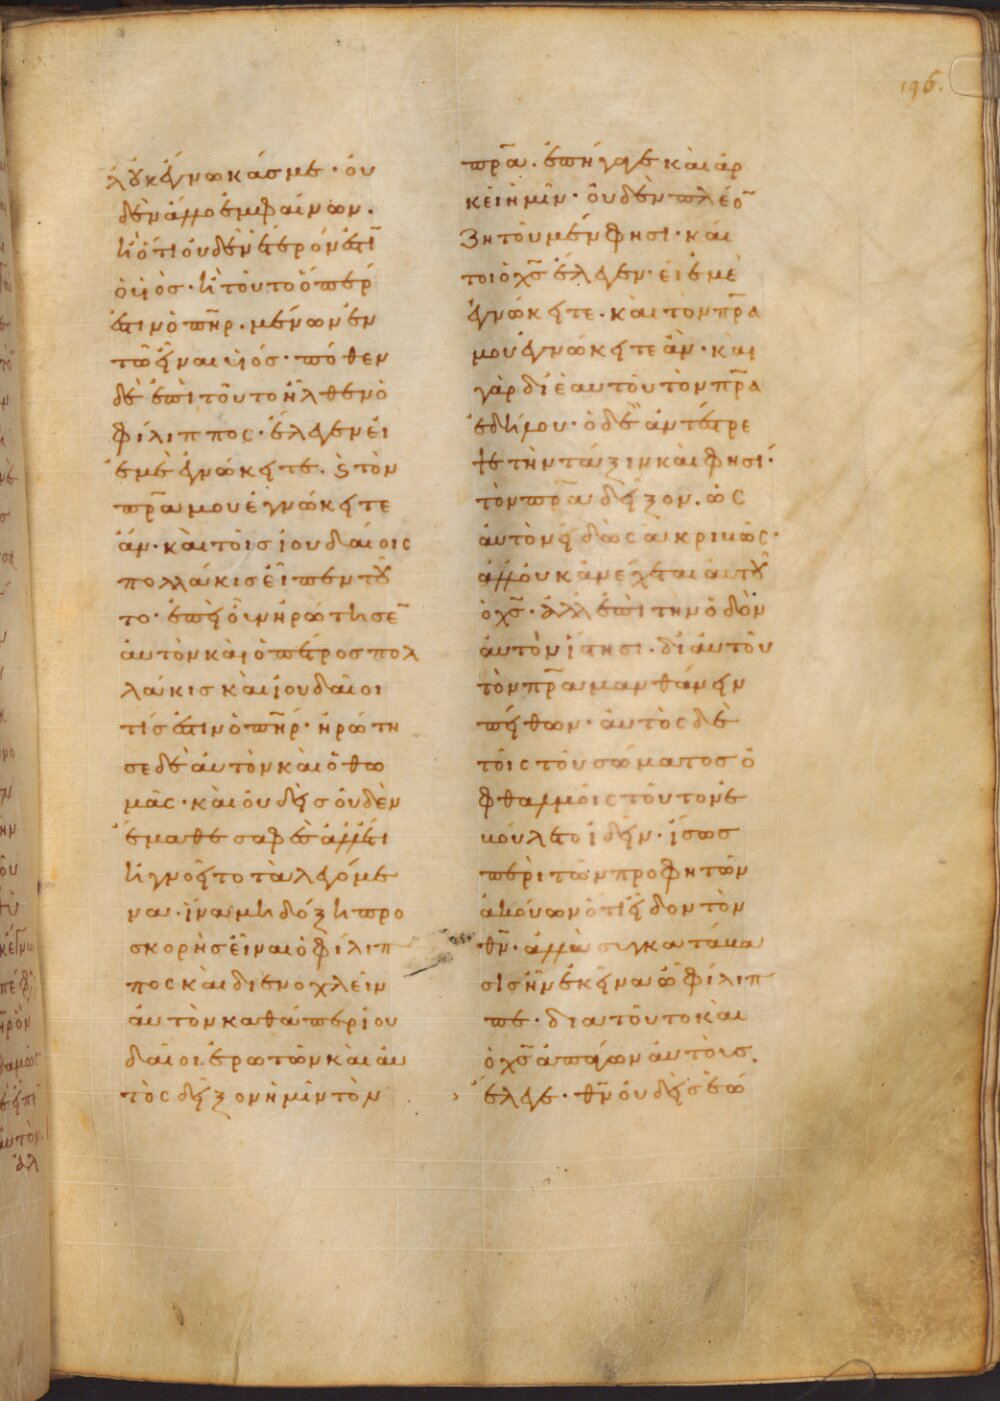 196.
λ οὐκ ἔγνωκάς με · οὐ
δὲν ἄλλο ἐμφαίνων ·
ἢ ὅτι οὐδὲν ἕτερόν ἐστῑ
ὁ υἱὸσ · ἢ τοῦτο ὅπερ
ἐστιν ὁ πη̅ρ · μένων ἐν
τῶ εἶναι υἱός · πόθεν
δὲ ἐπὶ τοῦτο ἦλθεν ὁ
φίλιππος · ἔλεγεν εἰ
ἐμὲ ἐγνώκειτε · ϗ τὸν
πρ̅α μου ἐγνώκειτε
ἄν · καὶ τοῖσ ἰουδαίοις
πολλάκισ εἶπεν τοῦ
το · ἐπεὶ οὖν ἠρώτησε̅
αὐτὸν καὶ ὁ πέτροσ πολ
λάκισ καὶ ἰουδαῖοι
τίσ ἐστιν ὁ πη̅ρ · ἠρώτη
σε δὲ αὐτὸν καὶ ὁ θω
μᾶς · καὶ οὐδεὶσ οὐδὲν
ἔμαθε σαφὲσ ἀλλ' ἔτι
ἠγνοεῖτο τὰ λεγόμε
να · ἵνα μὴ δόξη προ
σκορὴσ εἶναι ὁ φίλιπ
πος καὶ διενοχλεῖν
αὐτὸν καθάπερ ἰου
δαῖοι ἐρωτῶν καὶ αὐ
τὸς δεῖξον ἡμῖν τὸν
πρ̅α · ἐπήγαγε καὶ ἀρ
κεῖ ἡμῖν · οὐδὲν πλέο̅
ζητοῦμέν φησι · καί
τοι ὁ χσ̅ ἔλεγεν · εἰ ἐμὲ
ἐγνώκειτε · καὶ τὸν πρ̅α
μου ἐγνώκειτε ἂν · καὶ
γὰρ δι' ἑαυτοῦ τὸν πρ̅α
ἐδήλου · ὁ δὲ ἀντέστρε
ψε τὴν τάξιν καὶ φησί ·
τὸν πρ̅α δεῖξον · ὡς
αὐτὸν εἰδὼς ἀκριβῶς ·
ἀλλ' οὐκ ἀνέχεται αὐτοῦ
ὁ χσ̅ · ἀλλ' ἐπὶ τὴν ὁδὸν
αὐτὸν ἵστησι · δι' αὐτοῦ
τὸν πρ̅α μανθάνειν
πείθων · αὐτὸς δὲ
τοῖς τοῦ σώματοσ ὀ
φθαλμοῖς τοῦτον ἐ
βούλετο ἰδεῖν · ἴσωσ
περὶ τῶν προφητῶν
ἀκούων ὅτι εἶδον τὸν
θν̅ · ἀλλὰ συγκατάβα
σισ ἦν ἐκεῖνα ὦ φίλιπ
πε · διατοῦτο καὶ
ὁ χσ̅ ἀπάγων αὐτοὺσ.
ἔλεγε · θν̅ οὐδεὶσ ἑώ